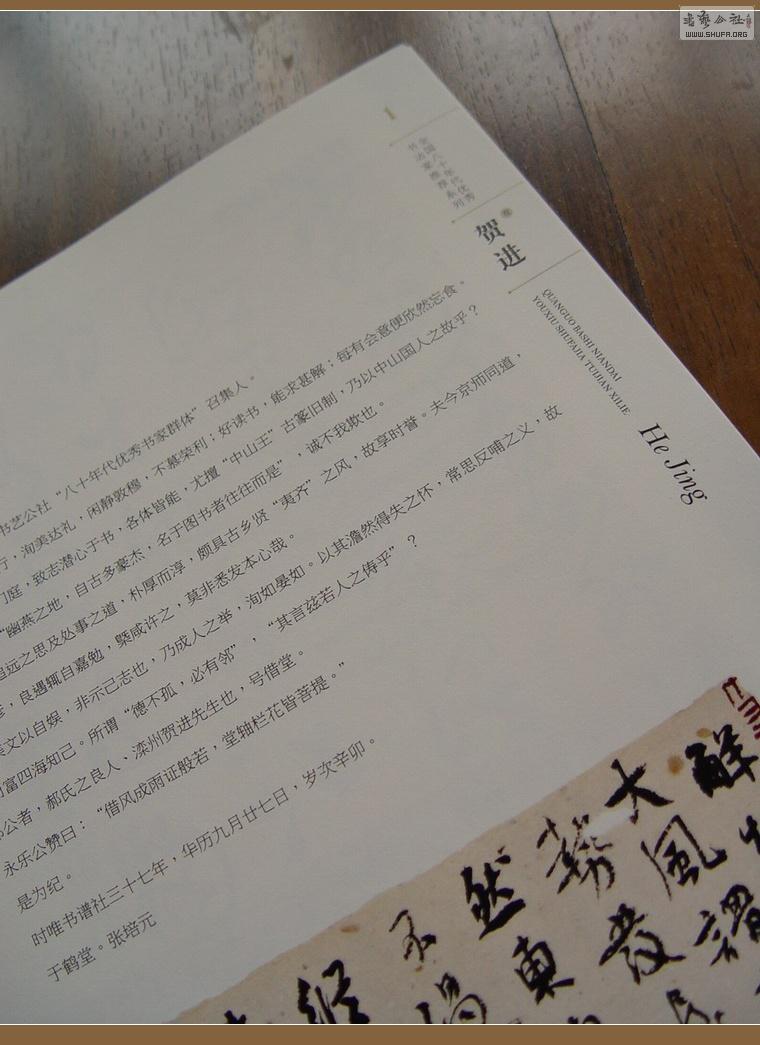 书艺公社
WWW.SHUFA.ORG
1
全国八十年代优秀
书法家推荐系列
贺进
卷
QUANGUO BASHI NIANDAI
YOUXIU SHUFAJIA TUIJIAN XILIE
He Jing
书艺公社“八十年代优秀书家群体”召集人。
行，洵美达礼，闲静敦穆，不慕荣利；好读书，能求甚解；每有会意便欣然忘食。
门庭，致志潜心于书，各体皆能，尤擅“中山王”古篆旧制，乃以中山国人之故乎？
“幽燕之地，自古多豪杰，名于图书者往往而是”，诚不我欺也。
追远之思及处事之道，朴厚而淳，颇具古乡贤“夷齐”之风，故享时誉。夫今京师同道，
，良遇辄自嘉勉，槩咸许之，莫非悉发本心哉。
文以自娱，非示己志也，乃成人之举，洵如晏如。以其澹然得失之怀，常思反哺之义，故
富四海知己。所谓“德不孤，必有邻”，“其言兹若人之俦乎”？
公者，郝氏之良人、滦州贺进先生也，号借堂。
永乐公赞曰：“借风成雨证般若，堂轴栏花皆菩提。”
是为纪。
时唯书谱社三十七年，华历九月廿七日，岁次辛卯。
于鹤堂。张培元
鲜
大風謂
然
不東發